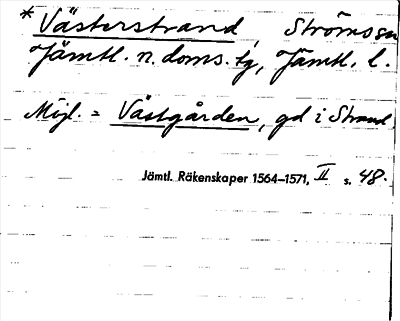 * Västerstrand, Ströms sn
Jämtl. n. doms. tg, Jämtl. l.
Möjl. = Västgården, gd i Strand
Jämtl. Räkenskaper 1564–1571, II s. 48.